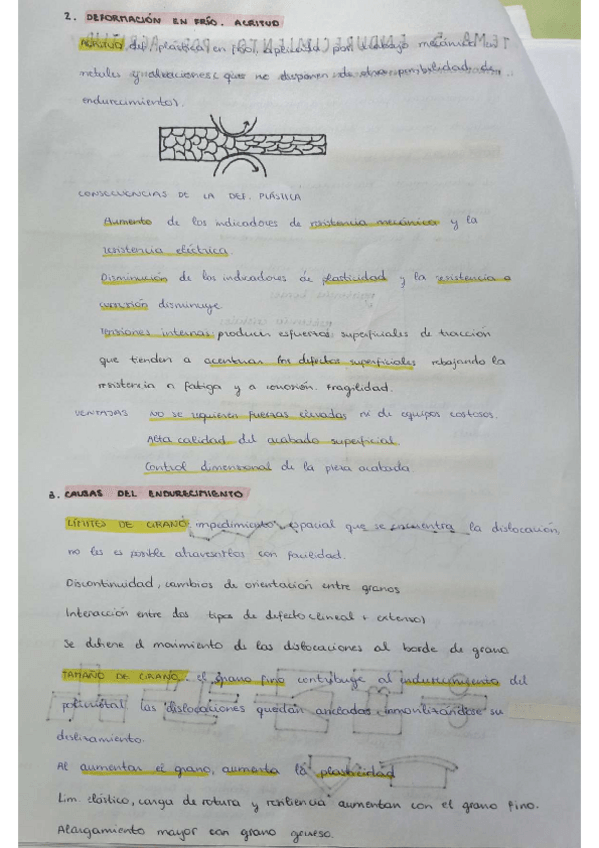 2. DEFORMACIÓN EN FRÍO. ACRITUD
ACRITUD, def. plástica en frío, aplicada por trabajo mecánico en
metales y aleaciones (que no disponen de otra posibilidad de
endurecimiento).
CONSECUENCIAS DE LA DEF. PLÁSTICA
Aumento de los indicadores de resistencia mecánica y la
resistencia eléctrica.
Disminución de los indicadores de plasticidad y la resistencia a
corrosión disminuye.
Tensiones internas producen esfuerzos superficiales de tracción
que tienden a acentuar los defectos superficiales rebajando la
resistencia a fatiga y a corrosión. Fragilidad.
VENTAJAS NO se requieren fuerzas elevadas ni de equipos costosos.
Alta calidad del acabado superficial
Control dimensional de la pieza acabada
3. CAUSAS DEL ENDURECIMIENTO
LÍMITES DE GRANO: impedimento espacial que se encuentra la dislocación,
no les es posible atravesarlos con facilidad.
Discontinuidad, cambios de orientación entre granos
Interacción entre dos tipos de defecto (lineal + externo)
Se detiene el movimiento de las dislocaciones al borde de grano
TAMAÑO DE GRANO: el grano fino contribuye al endurecimiento del
polimetal las dislocaciones quedan ancladas inmovilizándose su
deslizamiento.
Al aumentar el grano, aumenta la plasticidad
Lím. elástico, carga de rotura y resiliencia aumentan con el grano fino.
Alargamiento mayor con grano grueso.